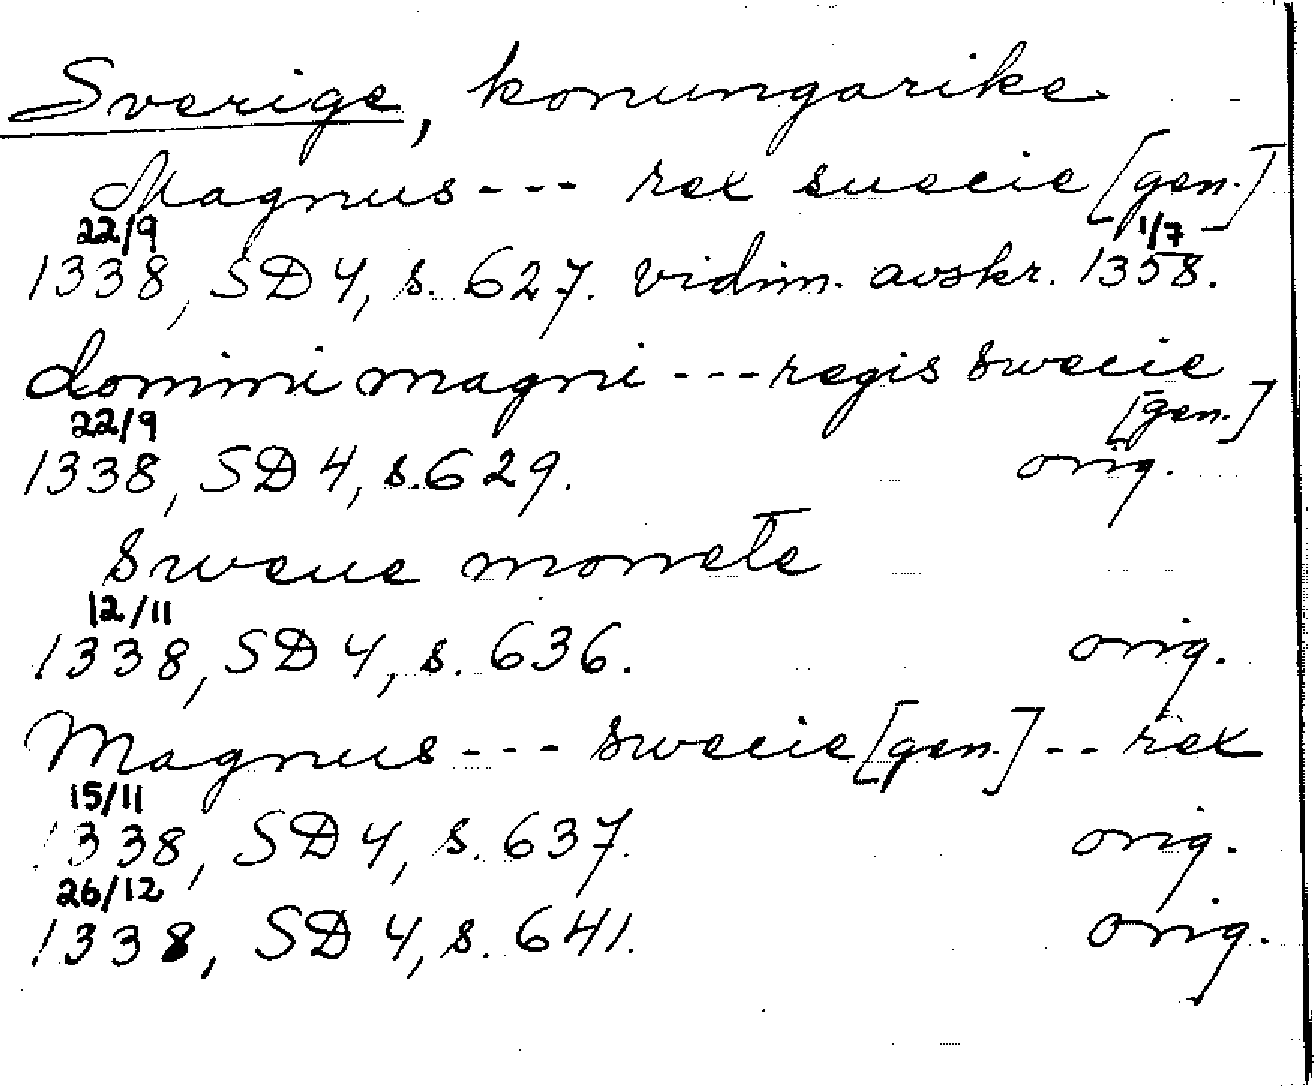 Sverige, konungarike
Magnus --- rex suecie [gen.]
22/9 1/7
1338, SD 4, s. 627. vidim. avskr. 1358.
domini magni --- regis swecie
22/9 [gen.]
1338, SD 4, s. 629. orig.
Sweue monete
12/11
1338, SD 4, s. 636. orig.
Magnus --- swecie [gen.] -- rex
15/11
1338, SD 4, s. 637. orig.
26/12
1338, SD 4, s. 641. orig.